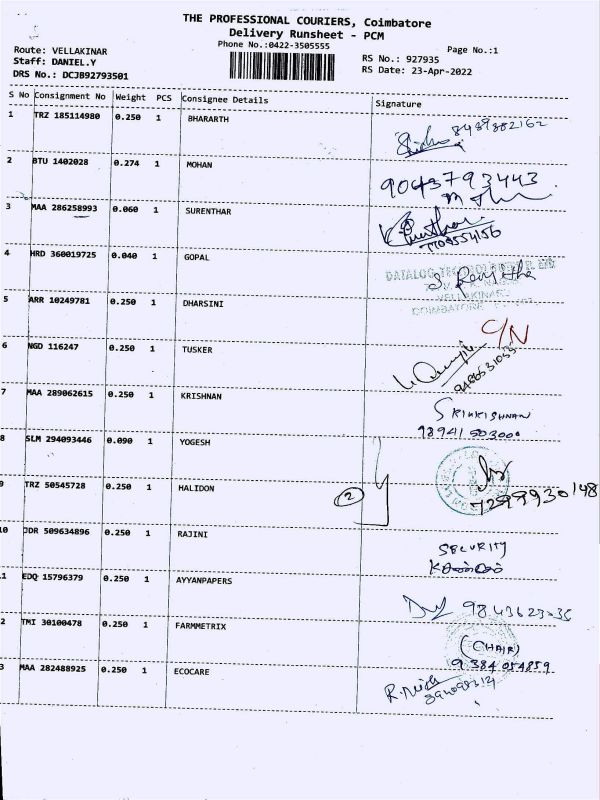 THE PROFESSIONAL COURIERS, Coimbatore
Delivery Runsheet - PCM
Phone No.:0422-3505555
Page No.:1
Route: VELLAKINAR
Staff: DANIEL.Y
DRS No.: DCJB92793501
RS No.: 927935
RS Date: 23-Apr-2022
S No Consignment No Weight PCS Consignee Details Signature
1 TRZ 185114980 0.250 1 BHARARTH
8489882162
2 BTU 1402028 0.274 1 MOHAN
9043793443
3 MAA 286258993 0.060 1 SURENTHAR
4 HRD 360019725 0.040 1 GOPAL
VELLAKINAR
COIMBATORE
5 ARR 10249781 0.250 1 DHARSINI
C/N
6 NGD 116247 0.250 1 TUSKER
7 MAA 289062615 0.250 1 KRISHNAN
8 SLM 294093446 0.090 1 YOGESH
9 TRZ 50545728 0.250 1 HALIDON
2
7299930148
10 JDR 509634896 0.250 1 RAJINI
SECURITY
1 EDQ 15796379 0.250 1 AYYANPAPERS
2 TMI 30100478 0.250 1 FARMMETRIX
(CHAIR)
9384054859
3 MAA 282488925 0.250 1 ECOCARE